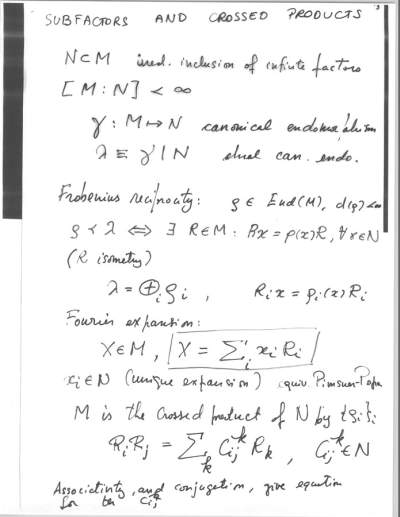 SUBFACTORS AND CROSSED PRODUCTS
N⊂M irred. inclusion of infinite factors
[M:N] < ∞
γ : M ↦ N canonical endomorphism
λ ≡ γ|N dual can. endo.
Frobenius reciprocity: ρ ∈ End(M), d(ρ)<∞
ρ < λ ⟺ ∃ R∈M : Rx = ρ(x)R, ∀x∈N
(R isometry)
λ = ⊕ᵢ ρᵢ , Rᵢx = ρᵢ(x)Rᵢ
Fourier expansion:
X∈M , X = Σᵢ xᵢRᵢ
xᵢ∈N (unique expansion) equiv. Pimsner-Popa
M is the crossed product of N by {ρᵢ}ᵢ
RᵢRⱼ = Σₖ Cᵢⱼᵏ Rₖ , Cᵢⱼᵏ∈N
Associativity, and conjugation, give equation
for the Cᵢⱼᵏ